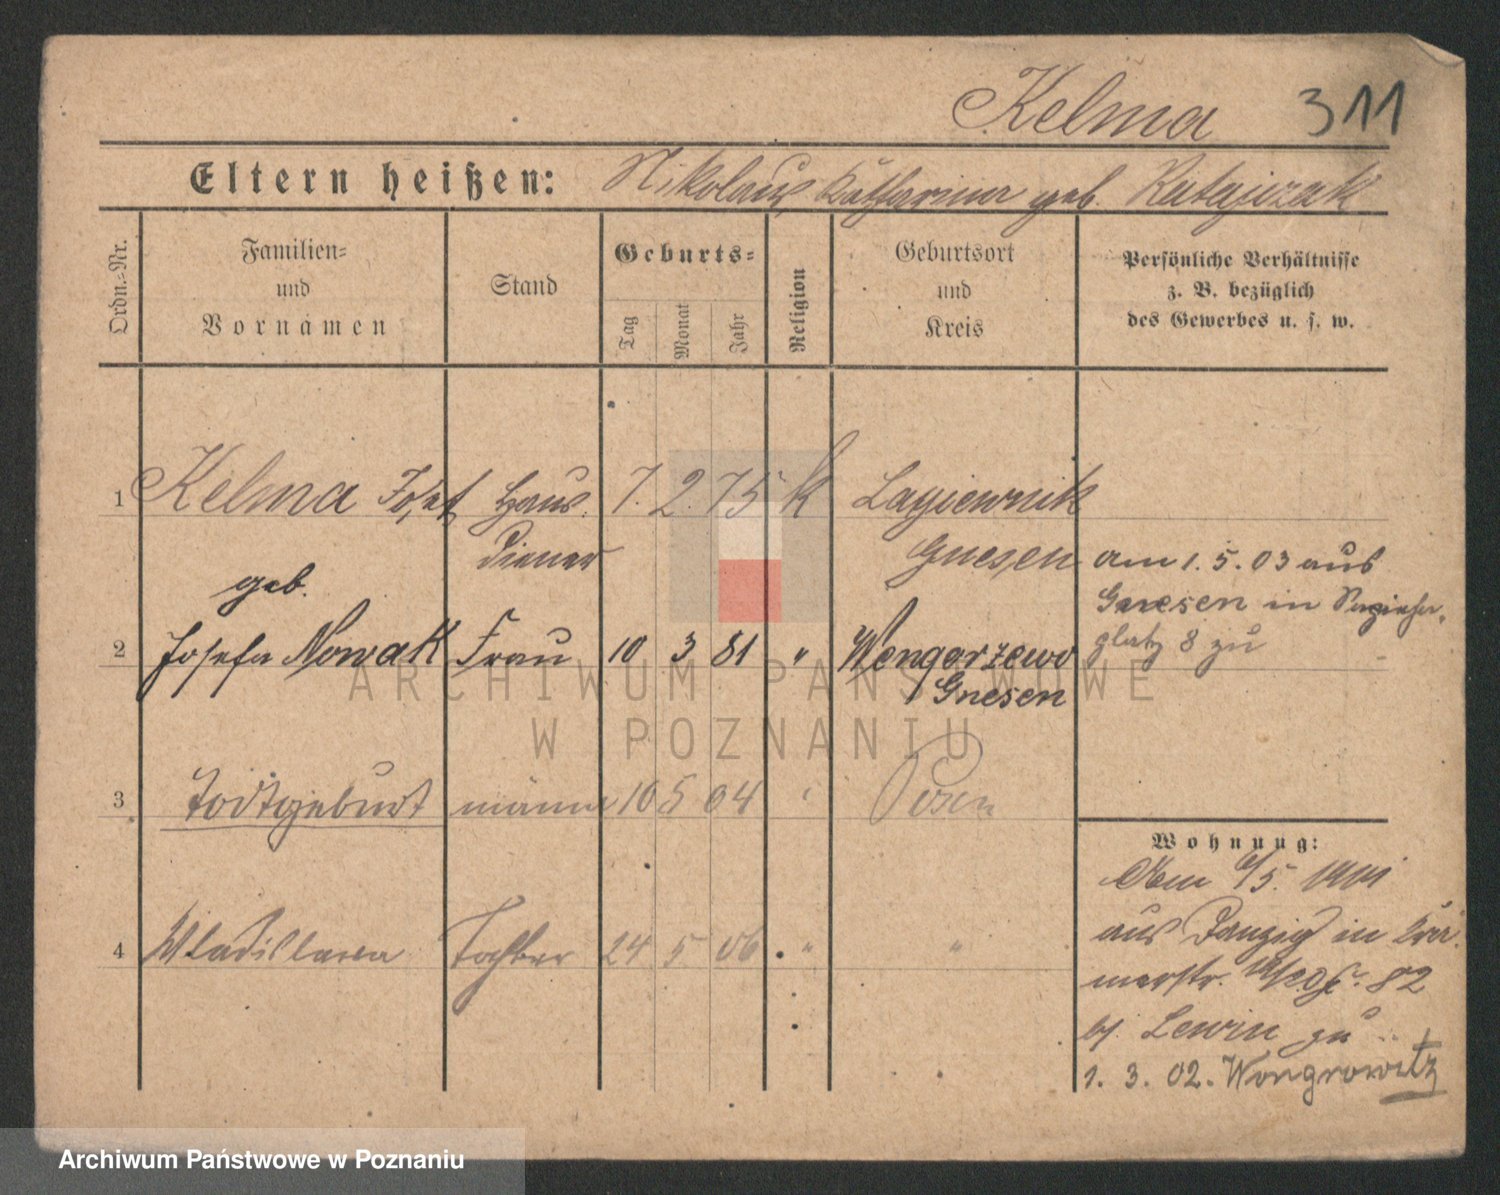 Kelma 311
Eltern heißen: Nikolaus, Katharina geb. Ratajczak
Ordn.=Nr.
Familien=
und
Vornamen
Stand
Geburts=
Tag Monat Jahr
Religion
Geburtsort
und
Kreis
Persönliche Verhältnisse
z. B. bezüglich
des Gewerbes u. s. w.
1 Kelma Josef Haus 7. 2. 75 K Lagiewnik
diener Gnesen
am 1. 5. 03 aus
geb. Gnesen in
2 Josefa Nowak Frau 10 3 81 " Wengorzewo
platz 8 zu
Gnesen
3 Todtgeburt männl 10 5 04 " Posen
Wohnung:
Am 6/5. 1901
4 Wladislawa Tochter 24 5 06 " "
aus Danzig in Krä
merstr. 82
bj. Lewin zu
1. 3. 02. Wongrowitz
ARCHIWUM PAŃSTWOWE
W POZNANIU
Archiwum Państwowe w Poznaniu